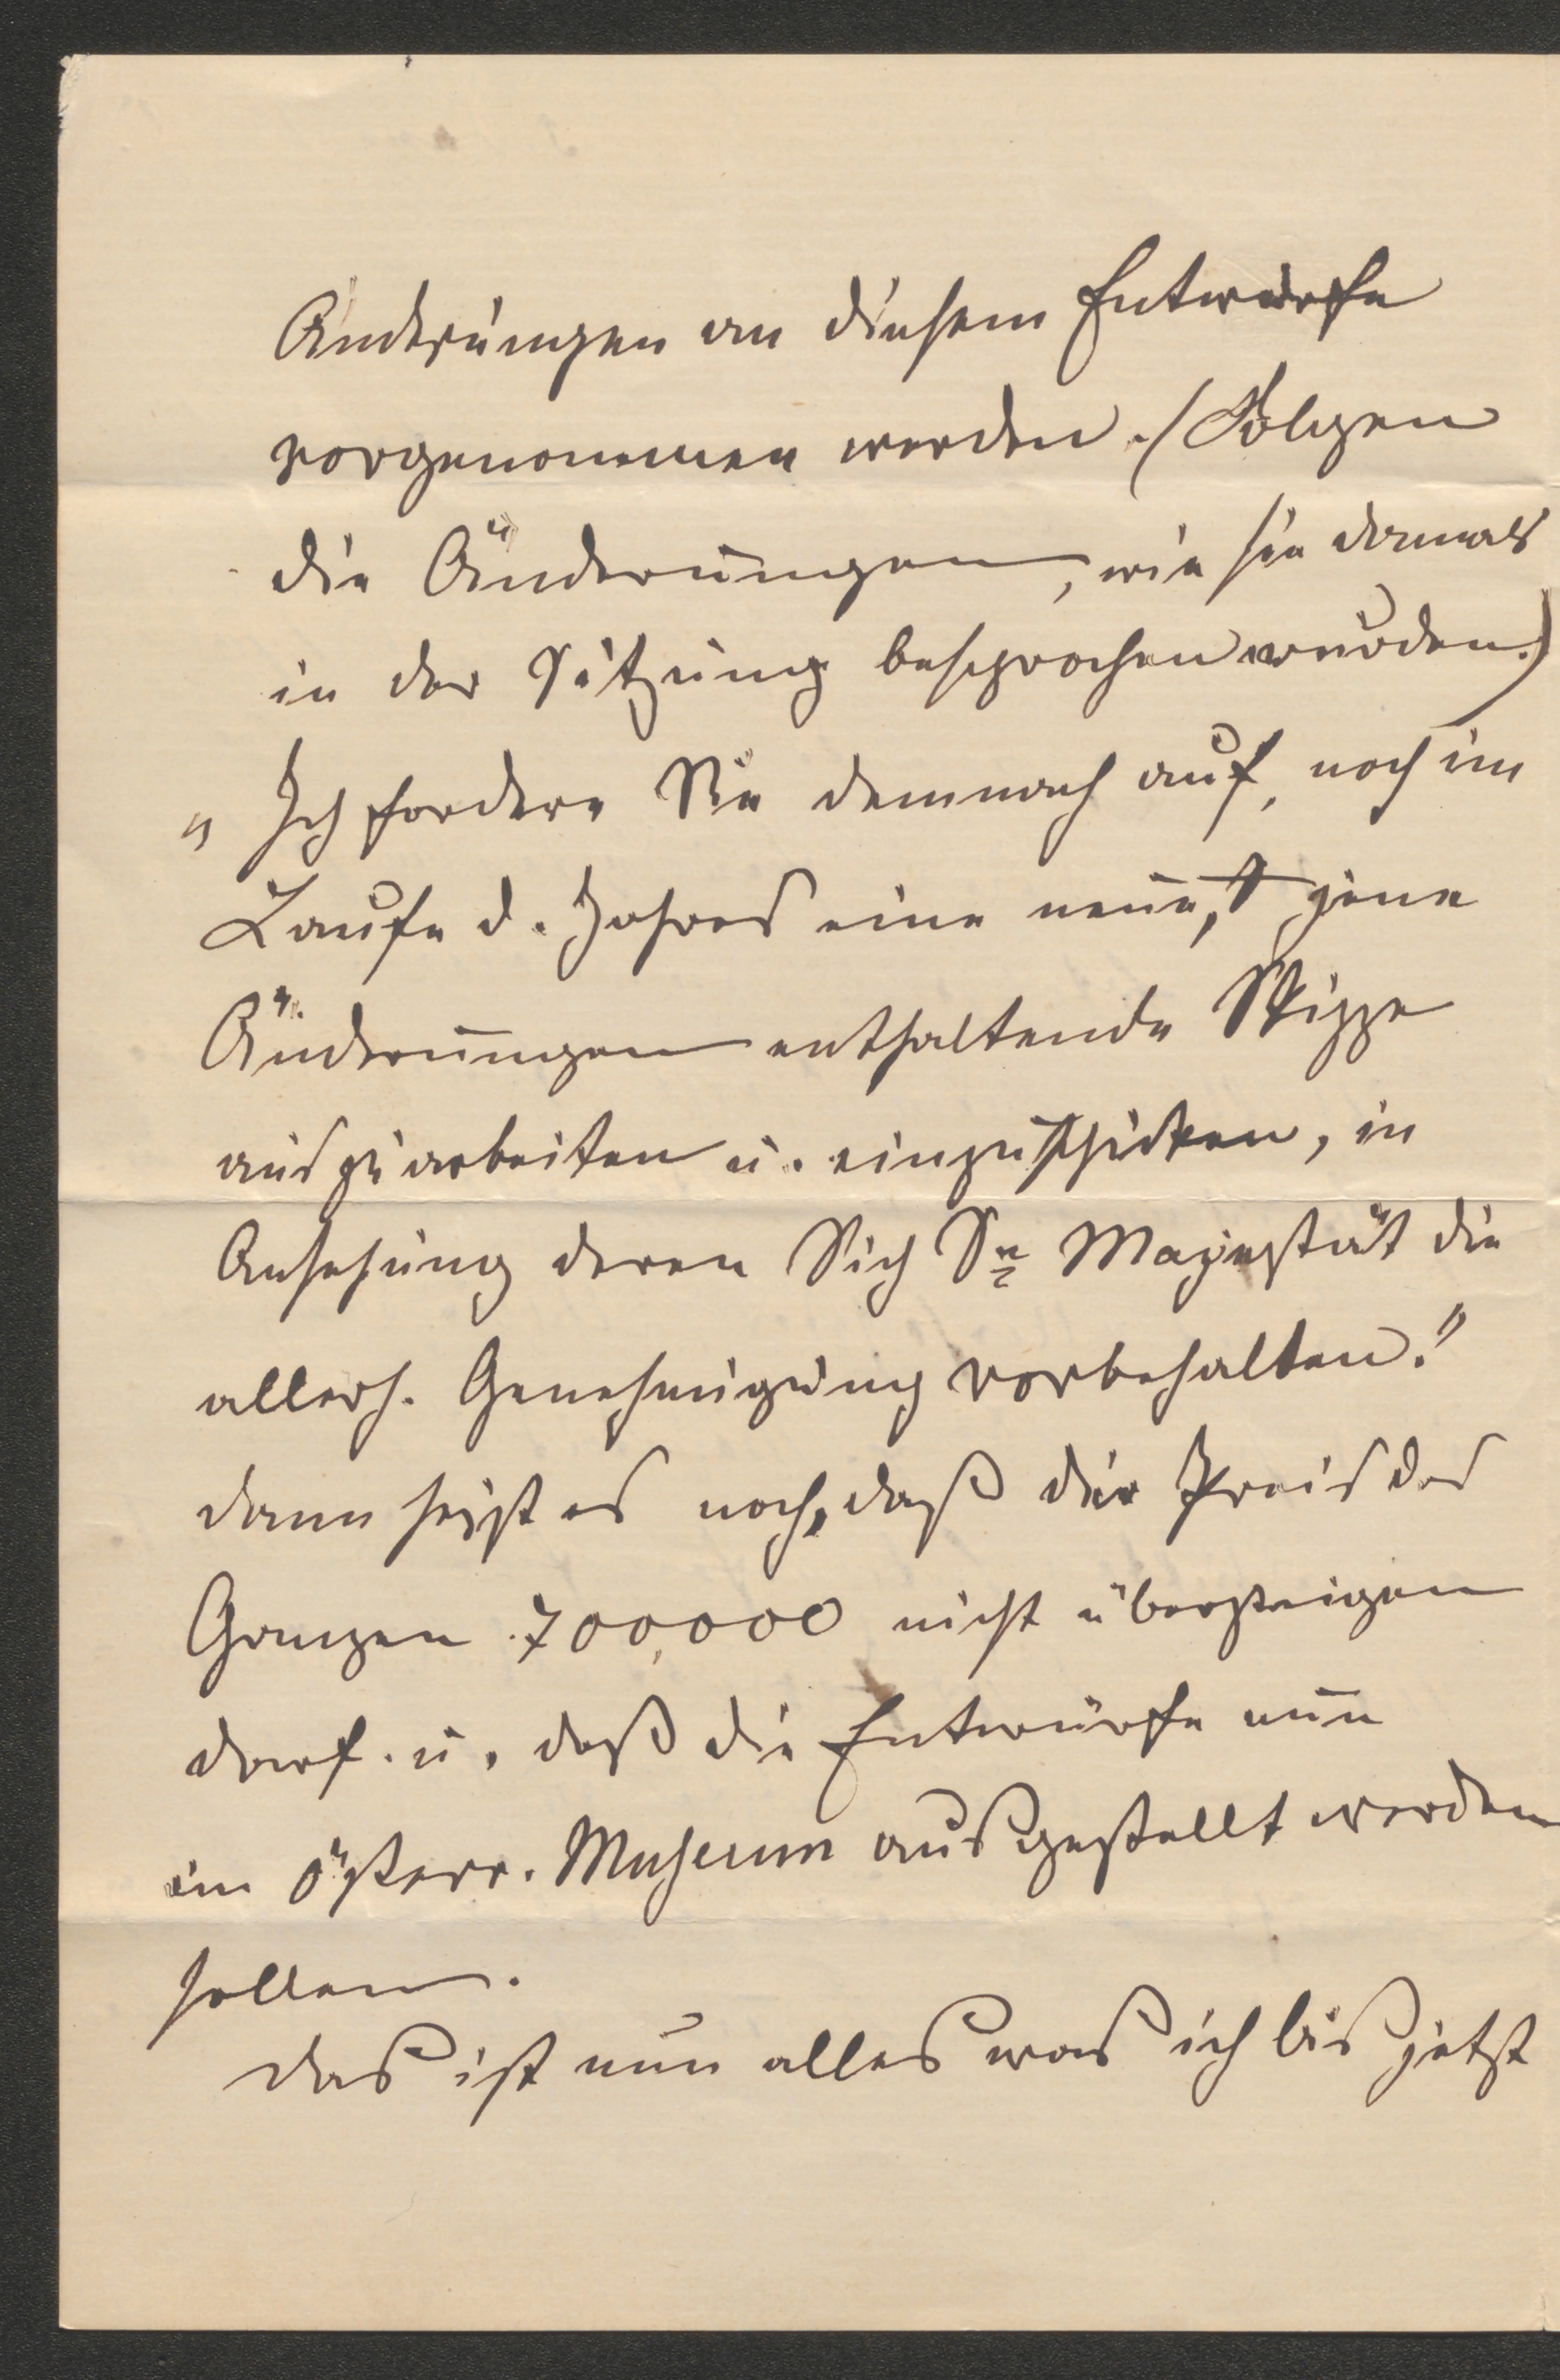 Änderungen an diesem Entwurfe
vorgenommen werden. (Folgen
die Änderungen, wie sie damals
in der Sitzung besprochen wurden.)
"Ich fordere Sie demnach auf, noch im
Laufe d. Jahres eine neue, jene
Änderungen enthaltende Skizze
auszuarbeiten u. einzuschicken, in
Ansehung deren Sich Se Majestät die
allerh. Genehmigung vorbehalten."
dann heißt es noch, daß der Preis des
Ganzen 700,000 nicht übersteigen
darf. u. daß die Entwürfe nun
im österr. Museum ausgestellt werden
sollen.
Das ist nun alles was ich bis jetzt